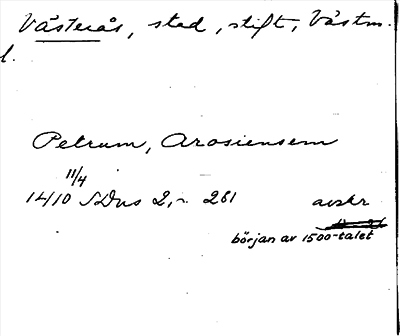 Västerås, stad, stift, Västm.
l.
Petrum, Arosiensem
11/4
1410 SDns 2, n. 281 avskr
början av 1500-talet